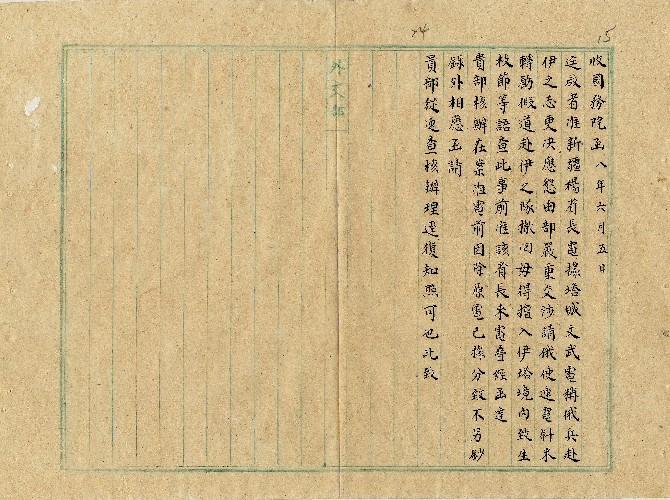 15
24
收國務院函八年六月五日
逕啟者准新疆楊省長電據塔城文武電稱俄兵赴
伊之志更決應懇由部嚴重交涉請俄使速電斜米
轉飭假道赴伊之隊撤回毋得擅入伊塔境內致生
枝節等語查此事前准該省長來電業經函達
貴部核辦在案准電前因除原電已據分致不另鈔
錄外相應函請
貴部從速查核辦理逕復知照可也此致
外交部